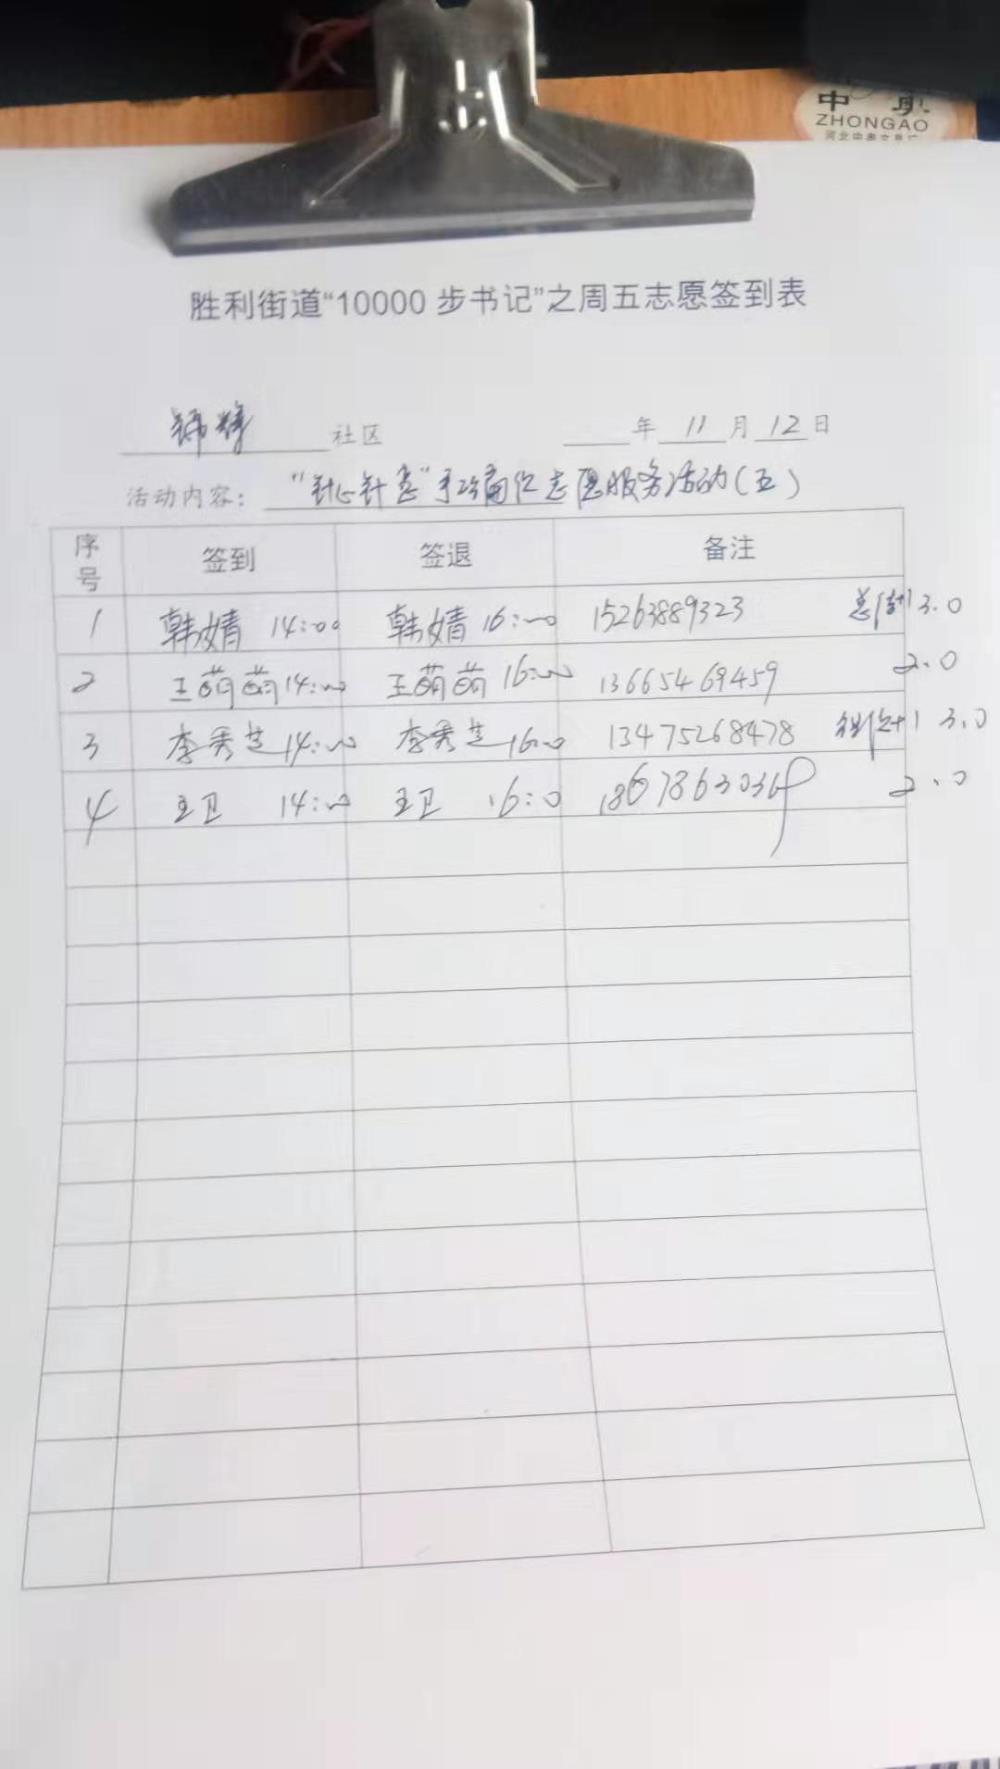 中
ZHONGAO
胜利街道“10000 步书记”之周五志愿签到表
锦华 社区 年 11 月 12 日
活动内容： “针心针意”手工 志愿服务活动（五）
序号 签到 签退 备注
1 韩婧 14:00 韩婧 16:00 15263889323 3.0
2 王萌萌 14:00 王萌萌 16:00 13665469459 2.0
3 李秀芝 14:00 李秀芝 16:00 13475268478 3.0
4 王卫 14:00 王卫 16:0 18678630369 2.0